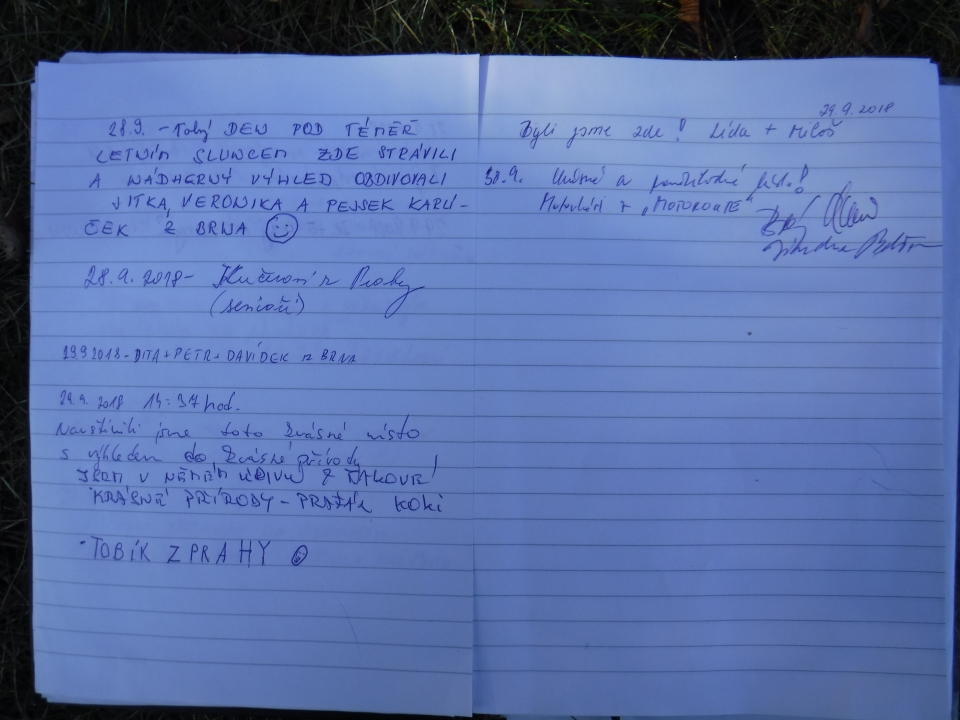 28.9. - DEN POD TÉMĚŘ
LETNÍM SLUNCEM ZDE STRÁVILI
A NÁDHERNÝ VÝHLED OBDIVOVALI
JITKA, VERONIKA A PEJSEK KARLÍ-
ČEK Z BRNA
28.9.2018 - z Prahy
(senioři)
29.9.2018 - DITA + PETR + DAVÍDEK z BRNA
29.9.2018 14:37 hod.
Navštívili jsme toto krásné místo
s výhledem do krásné přírody
JSEM V NĚMÉM ÚDIVU Z TAKOVÉ
KRÁSNÉ PŘÍRODY - PRAŽÁK
TOBÍK Z PRAHY
29.9.2018
Byli jsme zde! Lída + Miloš
30.9. a
Motorkáři +